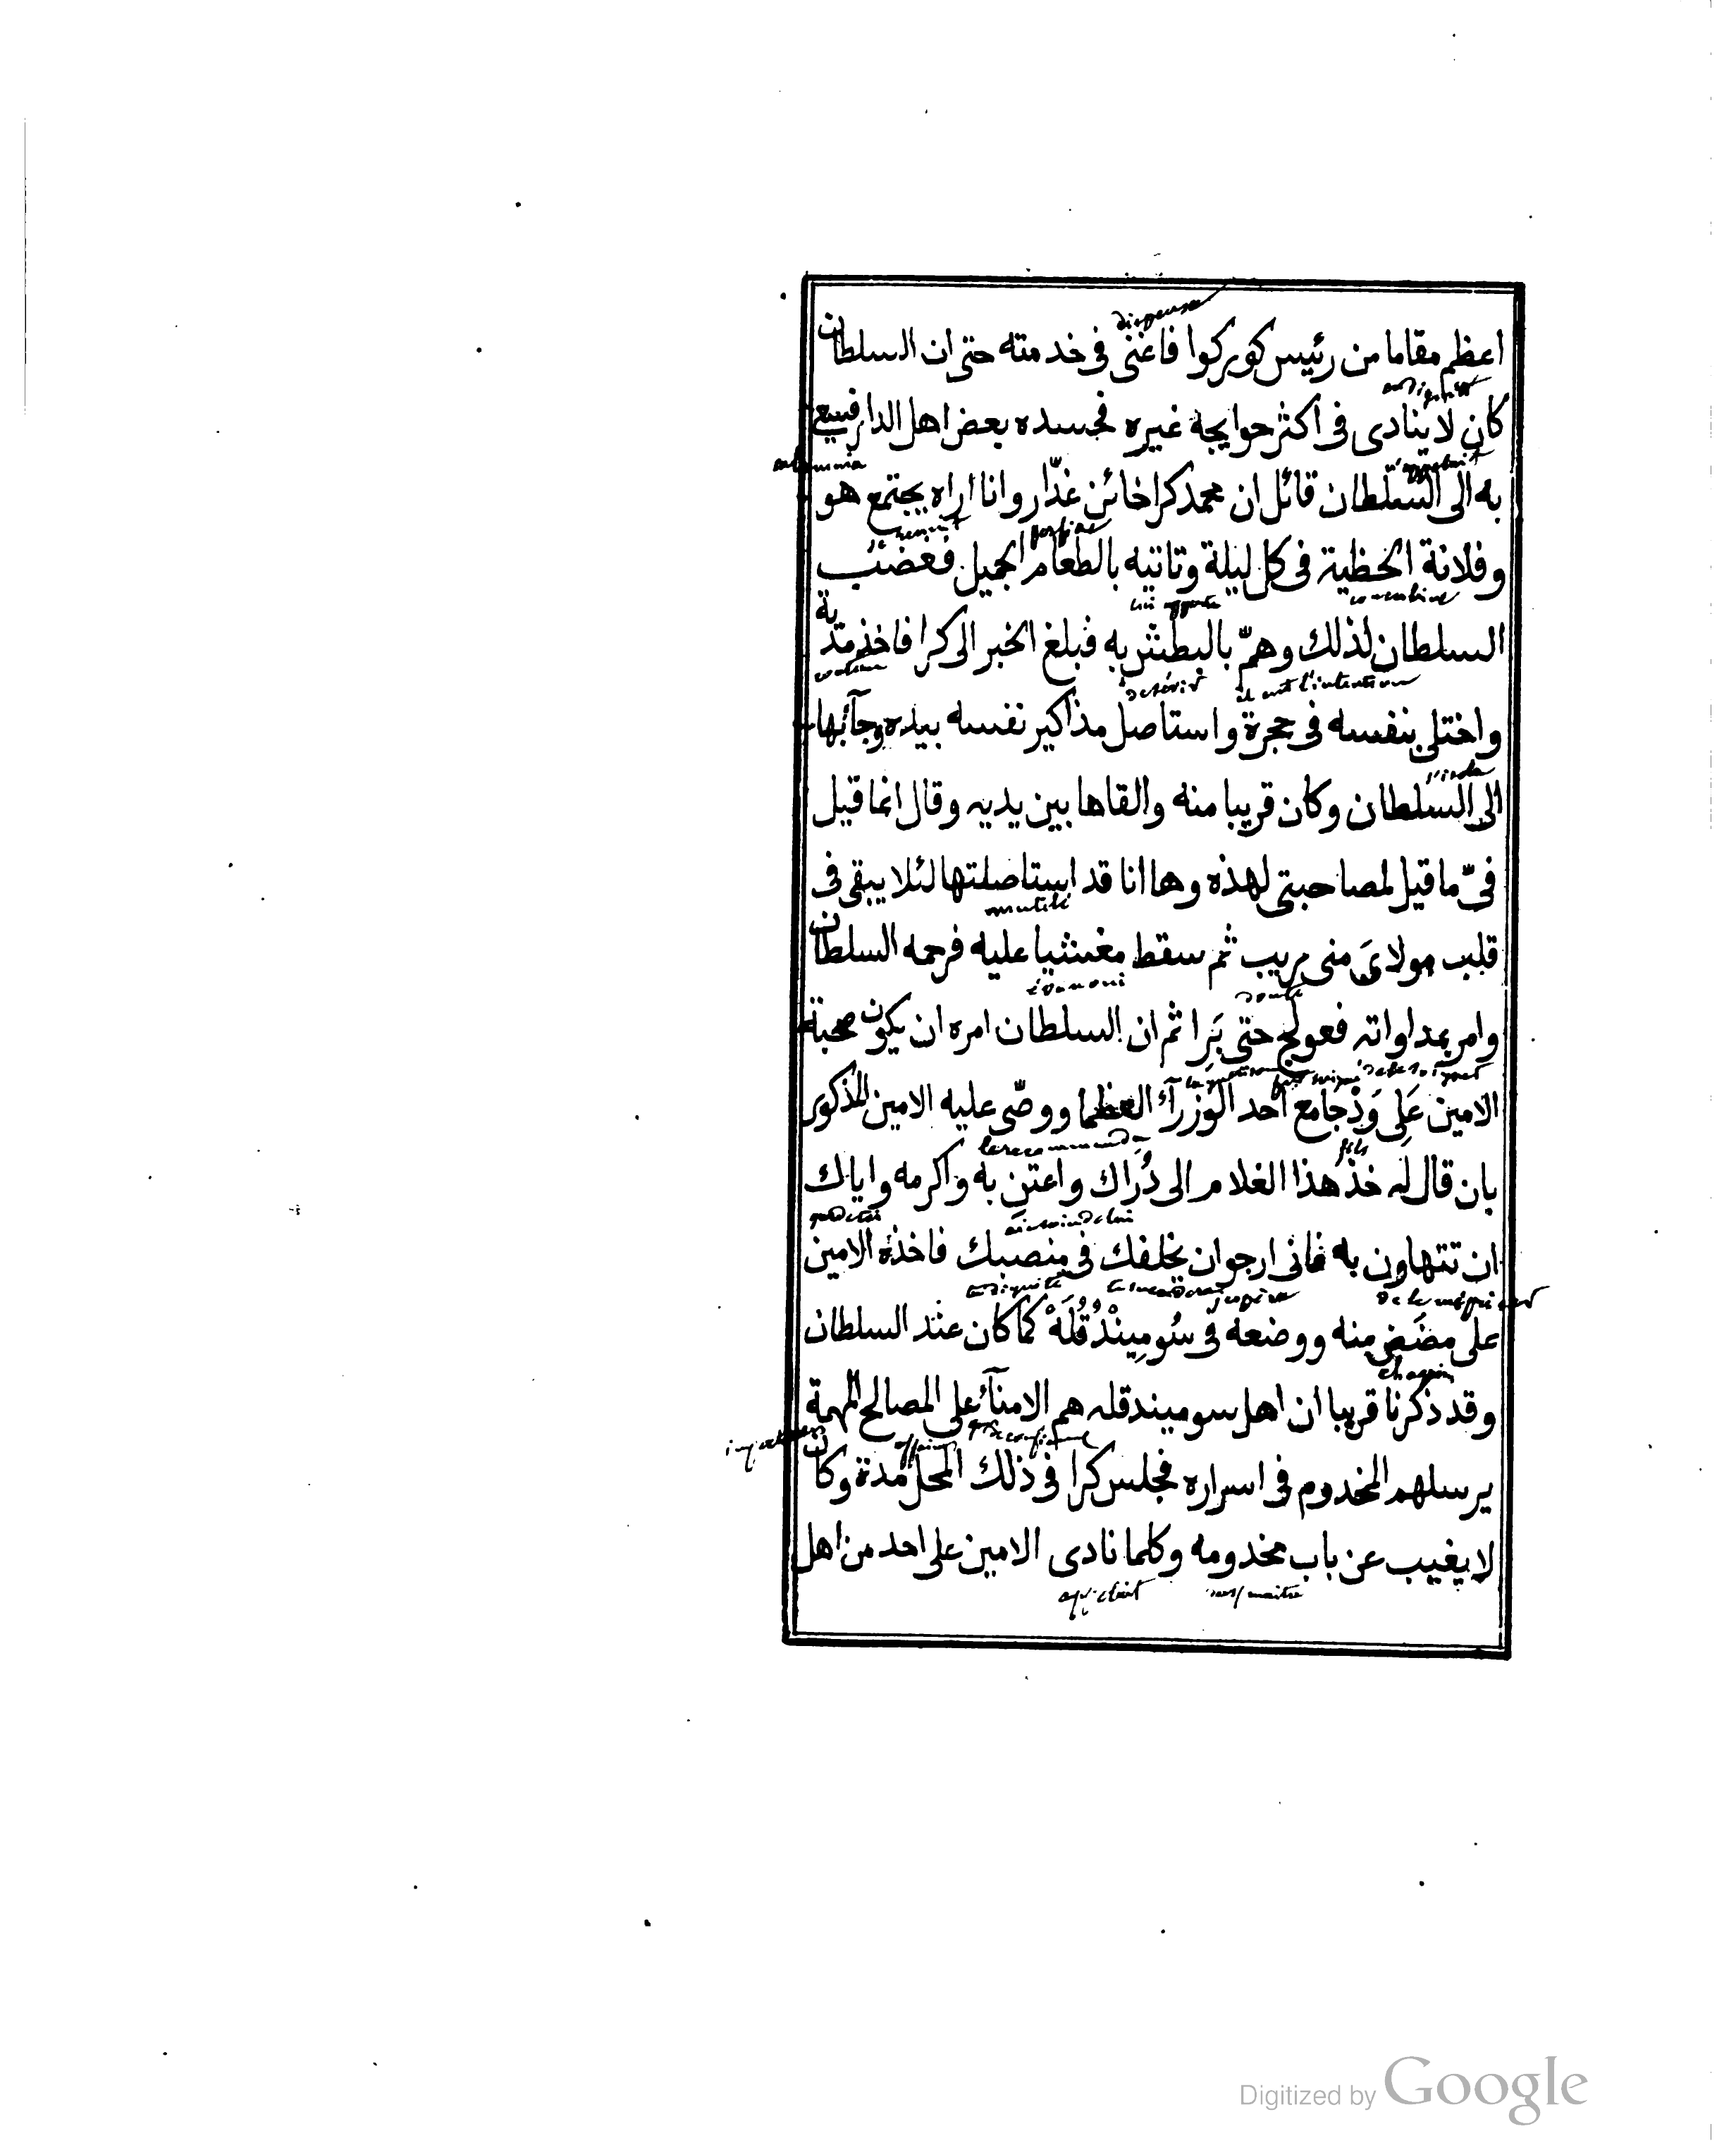 اعظم مقاما من رئيس كوركوا فاغنى فى خدمته حتى ان السلطان
كان لا ينادى فى اكثر حوايجه غيره فحسده بعض اهل الدار فسع
به الى السلطان قائل ان محمد كرا خائن غدّار وانا اراه يجتمع هو
وفلانة الحظية فى كل ليلة وتاتيه بالطعام الجميل فغضب
concubine
السلطان لذلك وهمّ بالبطش به فبلغ الخبر الى كرا فاخذ مدية
il eut l'intention
واختلى بنفسه فى حجرة واستاصل مذاكير نفسه بيده وجآء بها
الى السلطان وكان قريبا منه والقاها بين يديه وقال انما قيل
فىّ ما قيل لمصاحبتى لهذه وها انا قد استاصلتها لئلا يبقى فى
mutilé
قلب مولاىَ منى ريب ثم سقط مغشيا عليه فرحمه السلطان
évanoui doute
وامر بمداواته فعولج حتى بَرا ثم ان السلطان امره ان يكون صحبة
الامين عَلِى وَدْ جامع احد الوزرآء العظما ووصّى عليه الامين المذكور
le recommanda fils
بان قال له خذ هذا الغلام الى دُرَاك واعتنِ به واكرمه واياك
ان تتهاون به فانى ارجو ان يخلفك فى منصبك فاخذه الامين
ta dignité te succédera j'espère
على مضضٍ منه ووضعه فى سُومِينْدُقُلَهْ كما كان عند السلطان
chagrin
وقد ذكرنا قريبا ان اهل سوميندقله هم الامنآء على المصالح المهمة
يرسلهم المخدوم فى اسراره فجلس كرا فى ذلك المحل مدة وكان
لا يغيب عن باب مخدومه وكلما نادى الامين على احد من اهل
appelait maitre
Digitized by Google